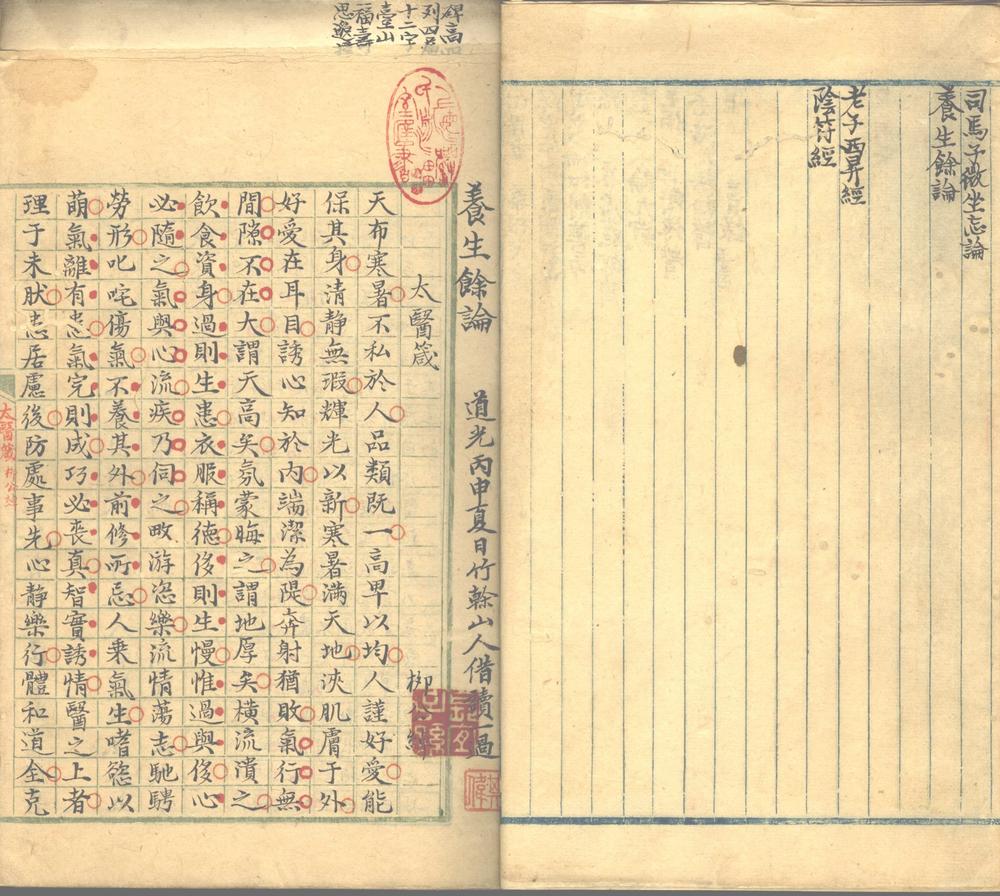 司馬子微坐忘論
養生餘論
老子西昇經
陰符經
碑高
列四
十二字
臺山
福壽
思邈
養生餘論 道光丙申夏日竹榦山人借讀一過
太醫箴 柳公綽
天布寒暑不私於人品類既一高卑以均人謹好愛能
保其身清靜無瑕輝光以新寒暑滿天地浹肌膚于外
好愛在耳目誘心知於內端潔為隄奔射猶敗氣行無
間隙不在大謂天高矣氛蒙晦之謂地厚矣橫流潰之
飲食資身過則生患衣服稱德侈則生慢惟過與侈心
必隨之氣與心流疾乃伺之畋游恣樂流情蕩志馳騁
勞形叱咤傷氣不養其外前修所忌人乘氣生嗜慾以
萌氣離有患氣完則成巧必喪真智實誘情醫之上者
理于未肰患居慮後防處事先心靜樂行體和道全克
太醫箴